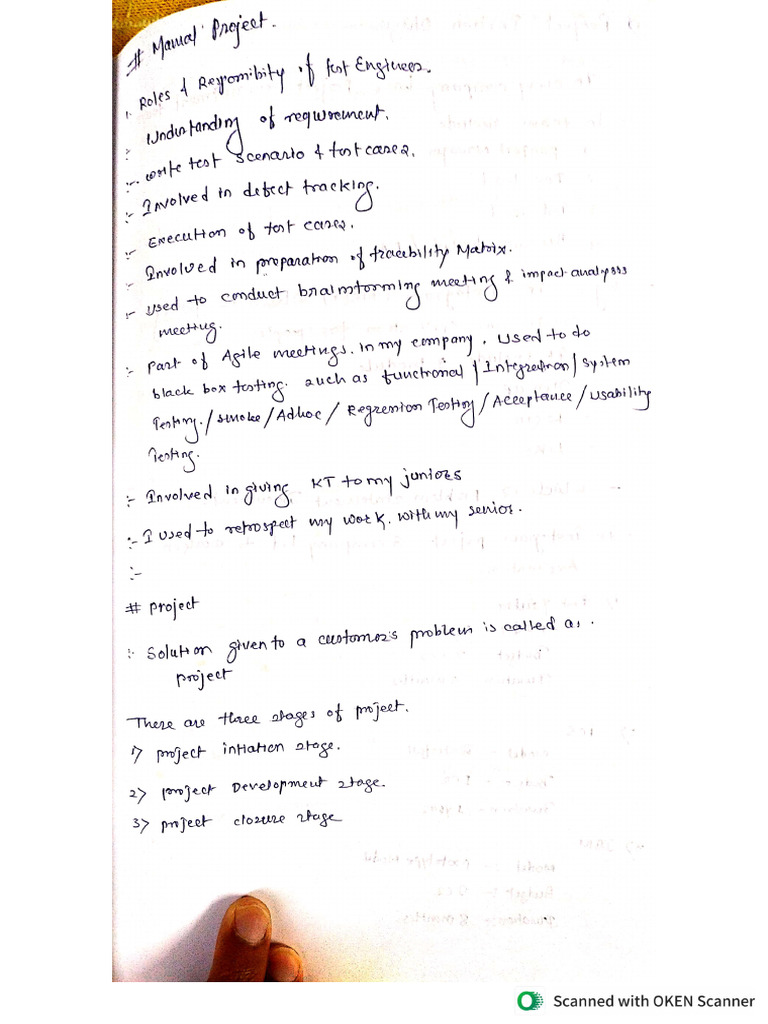 # Manual Project.
1. Roles & Responsibility of test Engineer.
:- Understanding of requirement.
:- write test scenario & test cases.
:- Involved in defect tracking.
:- Execution of test cases.
:- Involved in preparation of tracebility Matrix.
:- used to conduct brainstorming meeting & impact analysis
meeting.
:- Part of Agile meetings. in my company. Used to do
black box testing. such as functional / Integration / System
Testing. / smoke / Adhoc / Regression Testing / Acceptance / Usability
Testing.
:- Involved in giving KT to my juniors
:- I used to retrospect my work. with my senior.
:-
# project
:- Solution given to a customer's problem is called as.
project
There are three stages of project.
1) project intiation stage.
2) project Development stage.
3) project closure stage
Scanned with OKEN Scanner